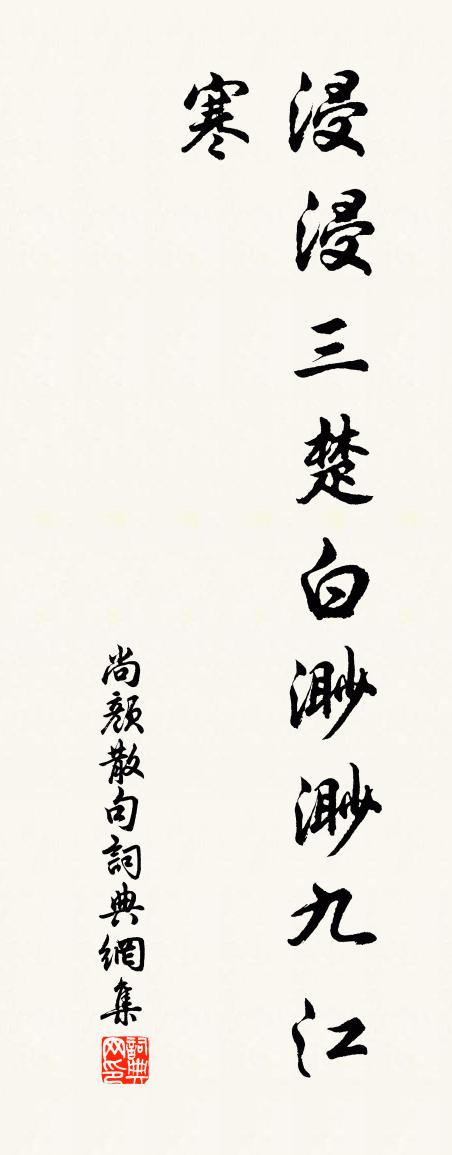 浸浸三楚白渺渺九江
寒
尚颜散句詞典網集
詞典网印